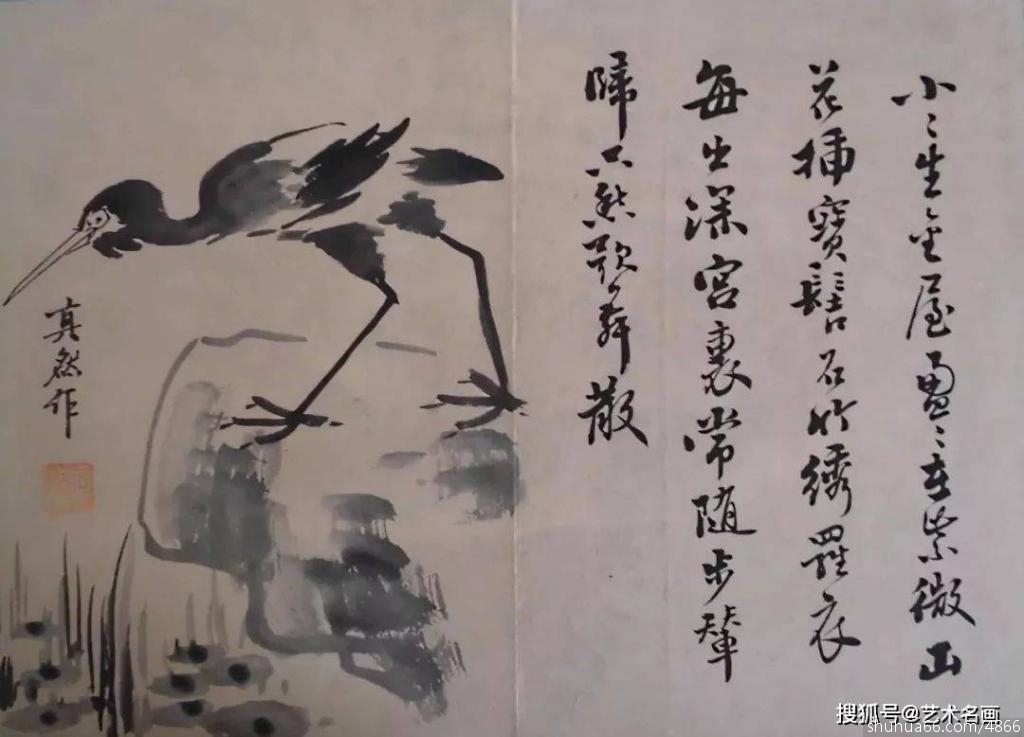 小〻生金屋盈〻在紫微山
花插寶髻石竹綉羅衣
每出深宮裏常随步輦
歸只愁歌舞散
真然作
搜狐号@艺术名画
shuhua66.com/4866